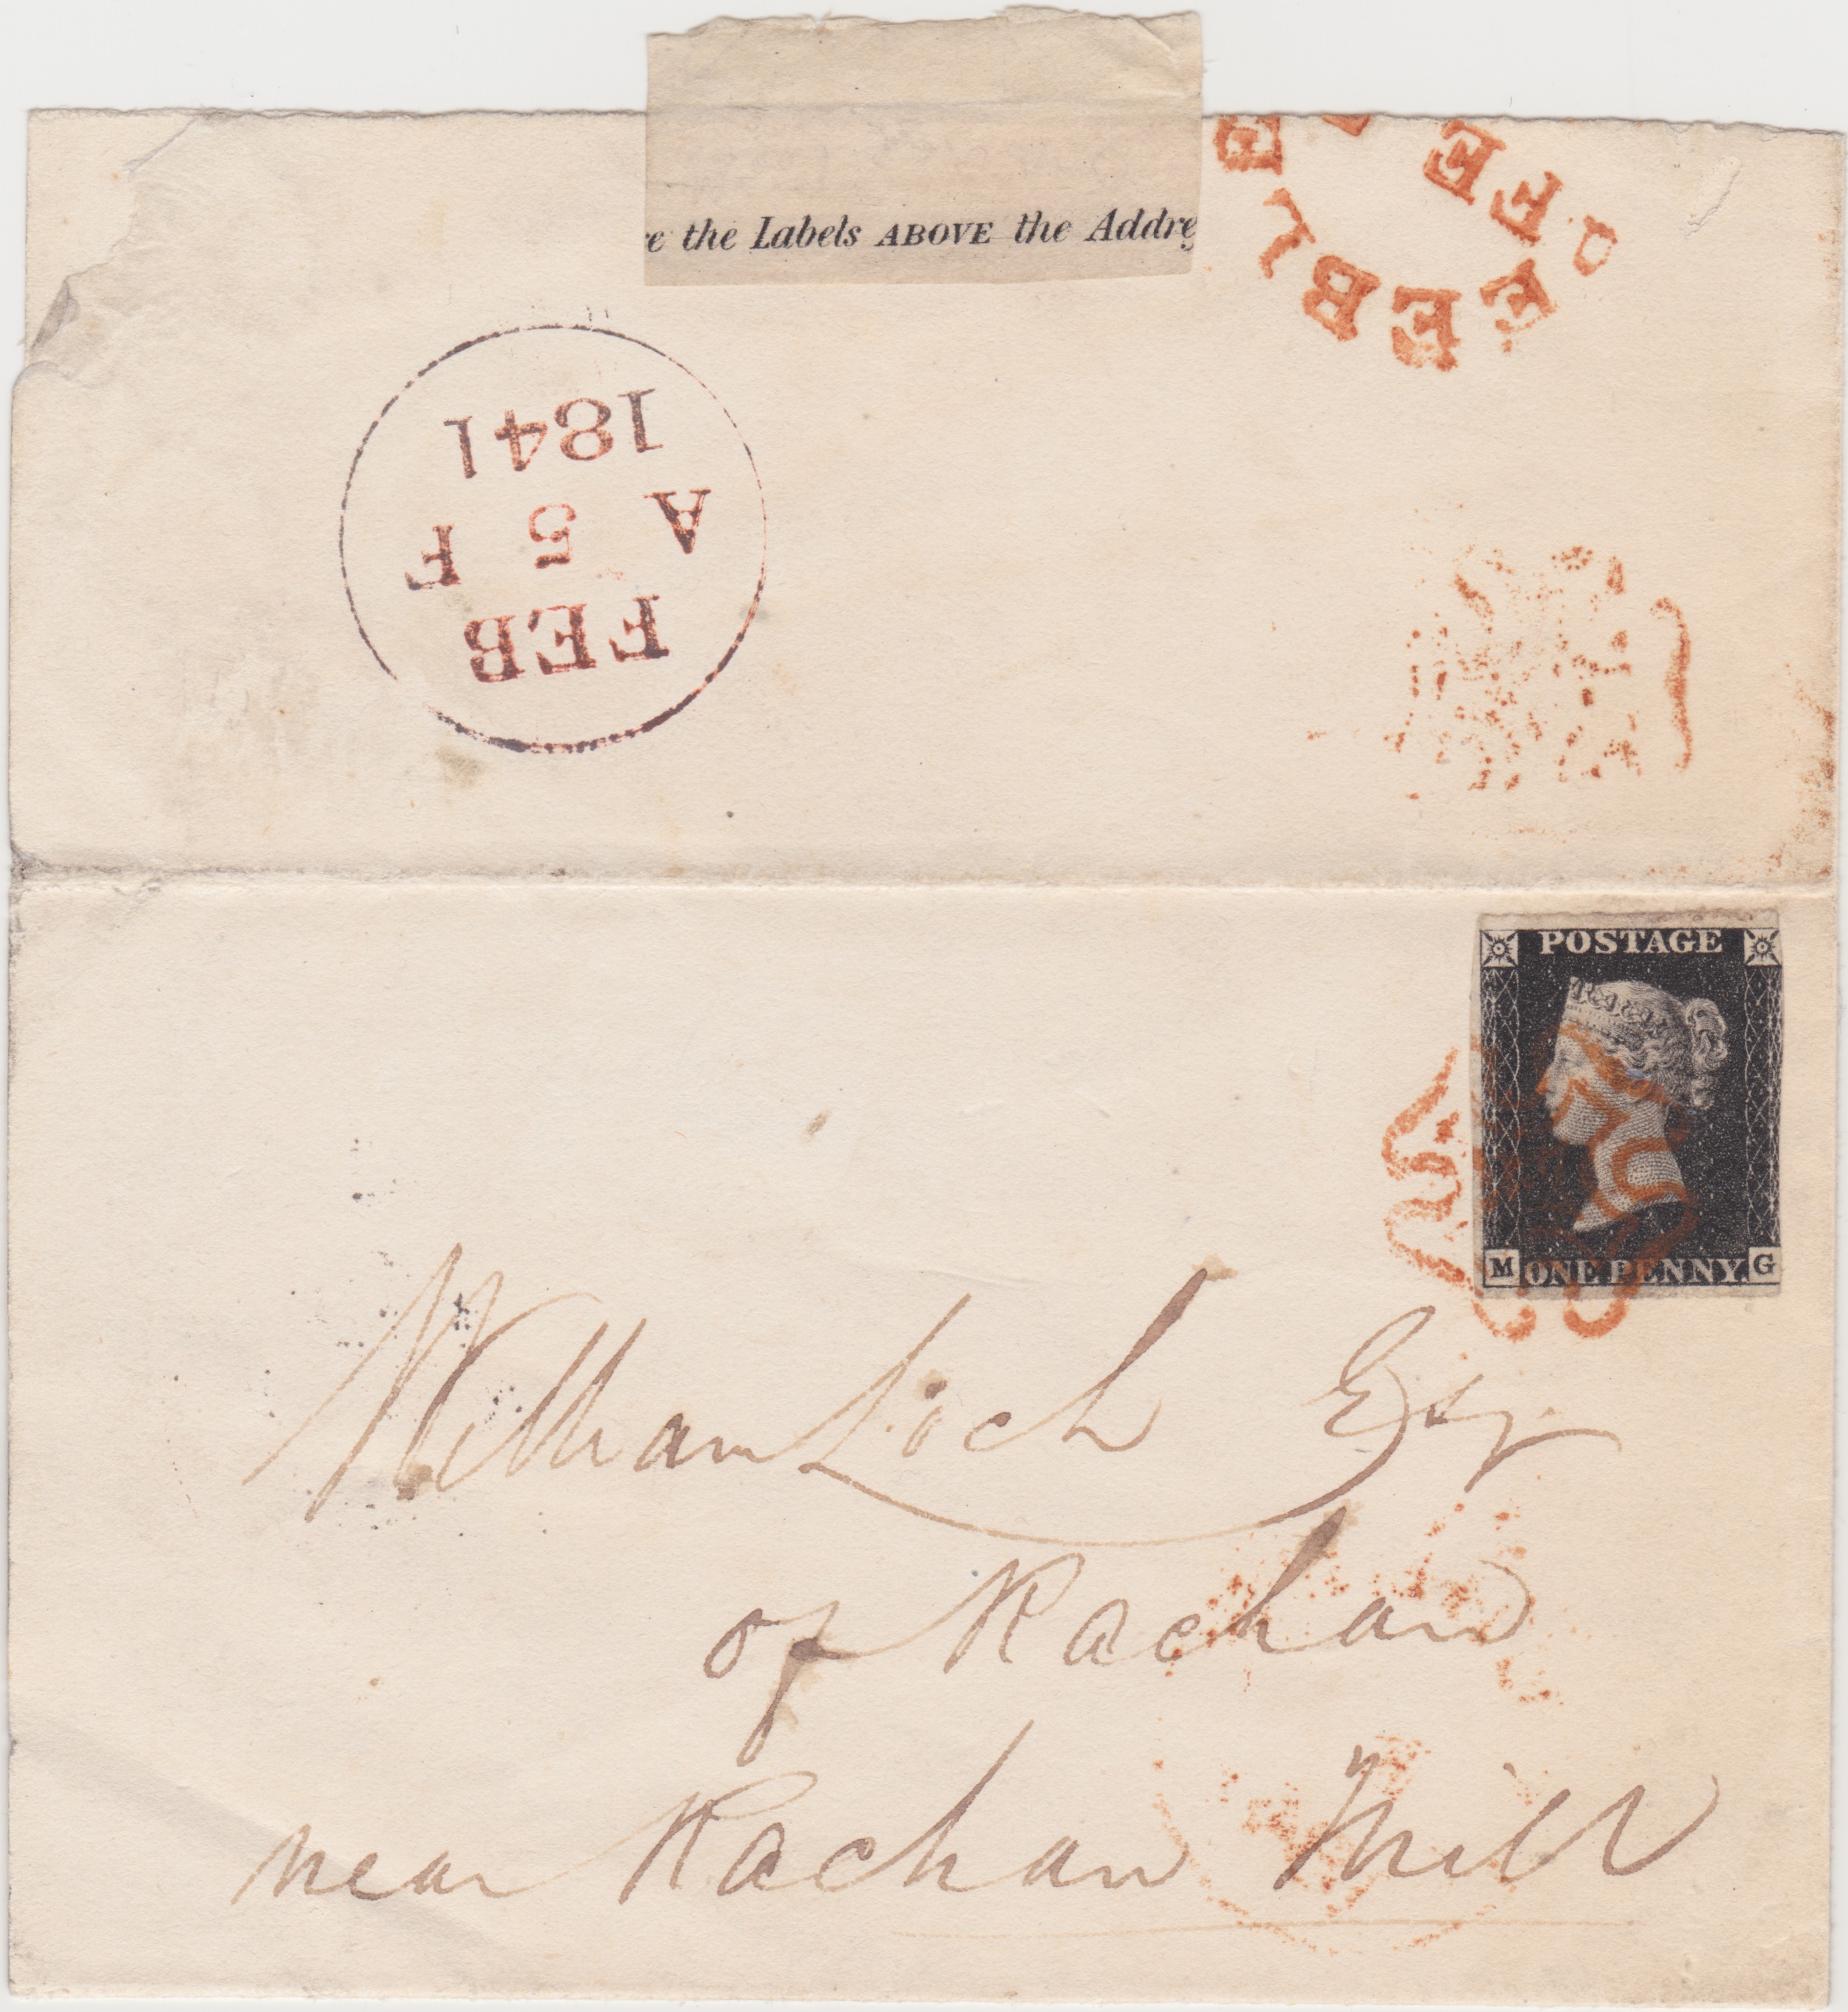 e the Labels ABOVE the Addre
FEB
A 5 F
1841
POSTAGE
M ONE PENNY. G
William Loch Esqr
of Rachan
near Rachan Mill